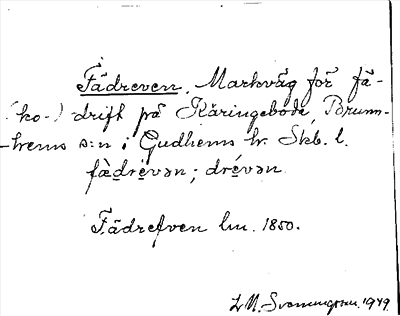 Fädreven. Markväg för fä-
(ko-) drift på Käringeboda, Brunn-
hems s:n i Gudhems hr. Skb. l.
fädrevən; drévən
Fädrefven lm. 1850.
1949.